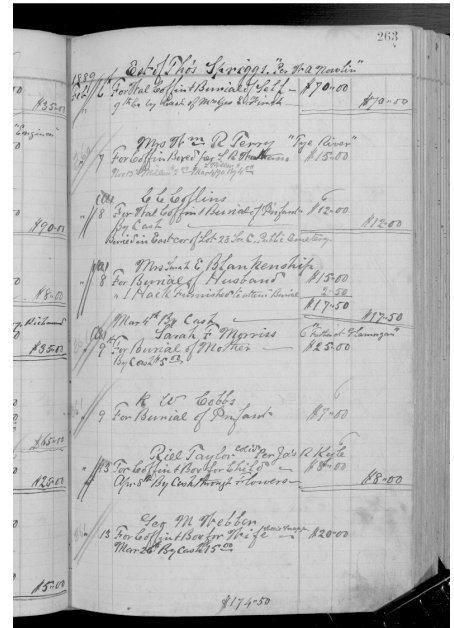 263
1889 Est of Thos Spriggs "Per W A Nowlin"
Feb 6 For Wal Coffin & Burial of Self $70-00
By Cash of $70-00
Mrs Wm R Terry "Tye River"
7 For Coffin Boxed per $15-00
C C Collins
" 8 For Wal Coffin & Burial of Infant $12-00
By Cash $12-00
Buried in East cor of Lot 23 Sec C. Public Cemetery
Mrs Sarah E Blankenship
" 8 For Burial of Husband $15-00
" 1 Hack Furnished 2-50
$17-50
Mar 4th By Cash $17-50
Sarah F Morriss
" 9 For Burial of Mother $25-00
By Cash $5.00
R W Cobbs
" 9 For Burial of Infant $7-00
Taylor Per Jas R Kyle
" 13 For Coffin & Box for Child $8-00
Apr 5th By Cash through Flowers $8-00
Geo M Webber
" 13 For Coffin & Box for Wife $20-00
Mar 26 By Cash 15.00
$174-50
$35-00
$90-00
$8-00
Richmond
$35-00
$65-00
$25-00
$5-00